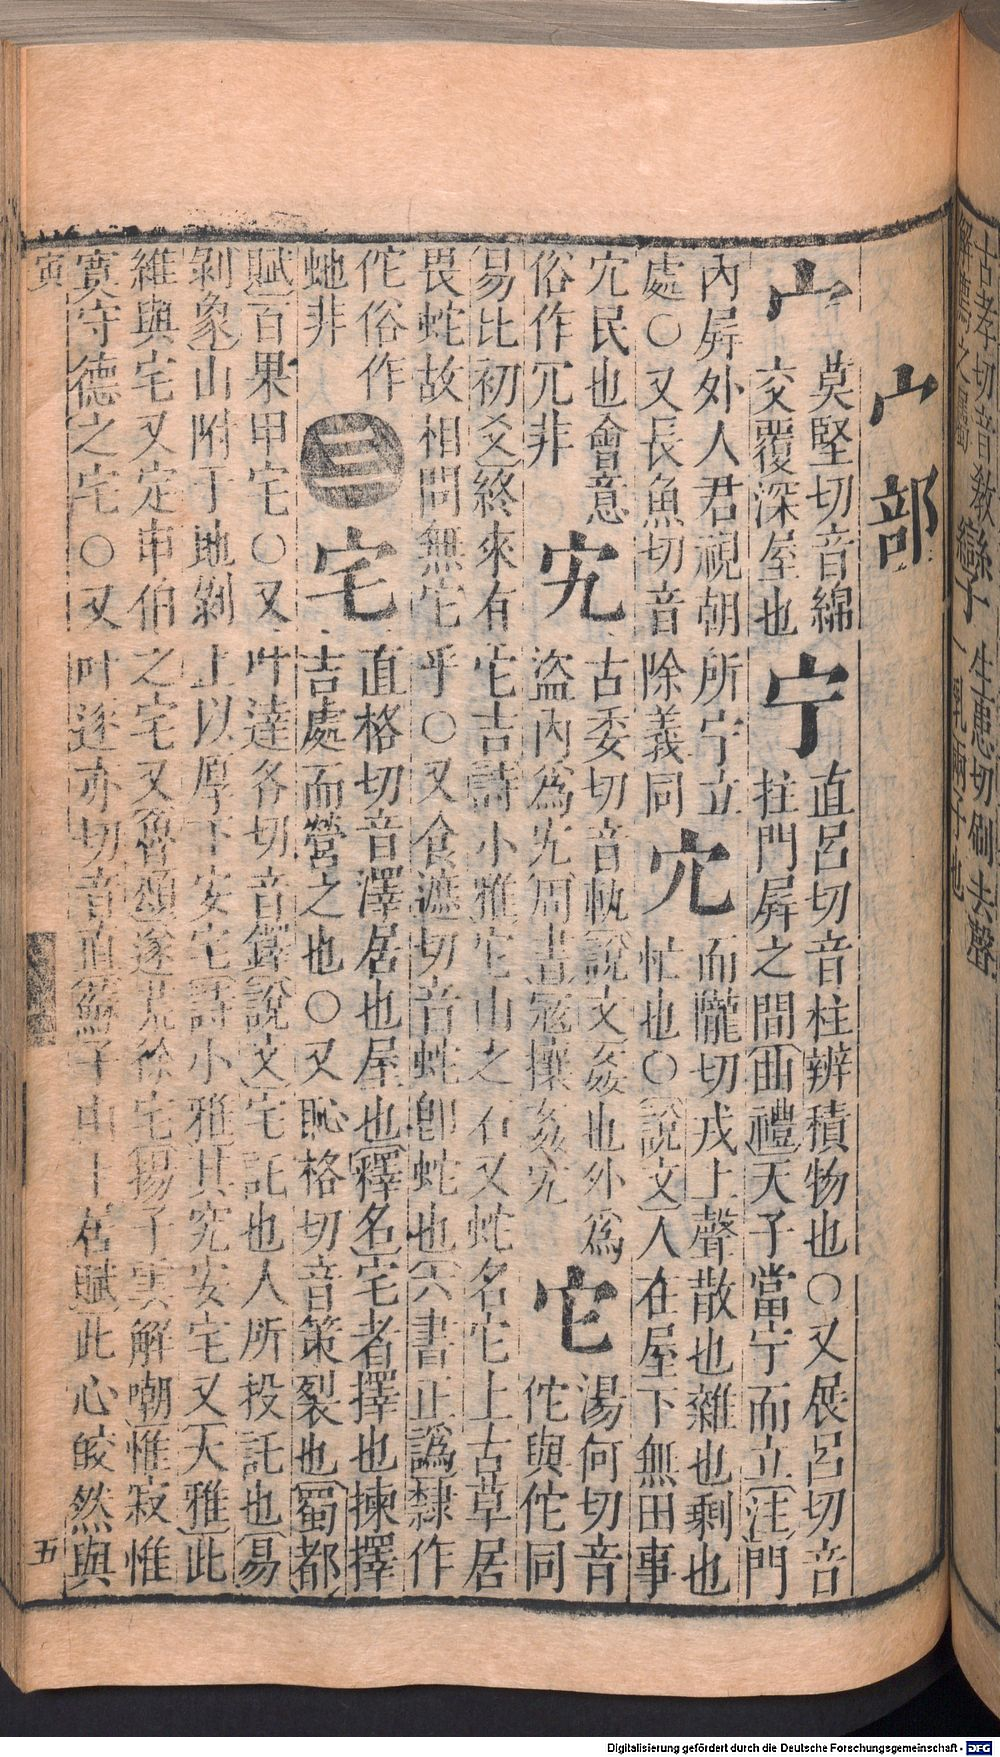 古孝切音教 孿子 生患切刷去聲
一乳兩子也
宀部
宀 莫堅切音綿
交覆深屋也
宁 直呂切音柱辨積物也○又展呂切音
拄門屏之間曲禮天子當宁而立注門
內屏外人君視朝所宁立
處○又長魚切音除義同
宂 而隴切戎上聲散也雜也剩也
忙也○說文人在屋下無田事
宂民也會意
俗作冗非
宄 古委切音軌說文姦也外爲
盜內爲宄周書寇攘姦宄
它 湯何切音
佗與佗同
易比初爻終來有它吉詩小雅它山之石又蛇名它上古草居
畏蛇故相問無它乎○又食遮切音蛇卽蛇也六書正譌隸作
佗俗作
虵非
三
宅 直格切音澤居也屋也釋名宅者擇也揀擇
吉處而營之也○又恥格切音策裂也蜀都
賦百果甲宅○又叶達各切音鐸說文宅託也人所投託也易
剝象山附于地剝上以厚下安宅詩小雅其究安宅又大雅此
維與宅又定申伯之宅又魯頌遂荒徐宅揚子雲解嘲惟寂惟
寞守德之宅○又叶逐亦切音直蘇子由卜居賦此心皎然與
寅
五
Digitalisierung gefördert durch die Deutsche Forschungsgemeinschaft - DFG